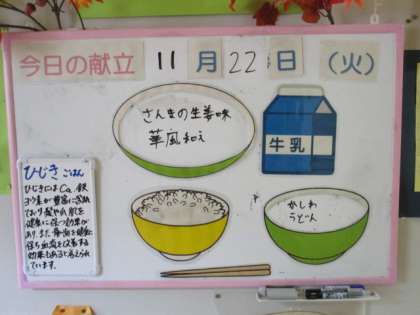 今日の献立 11月22日(火)
さんまの生姜味
華風和え
牛乳
かしわ
うどん
ひじきごはん
ひじきにはCa、鉄
ヨウ素が豊富に含まれ
ており髪や爪、肌を
健康に保つ効果が
あり、また、骨・歯を健康に
保ち血液を改善する
効果もあると考えられ
ています。